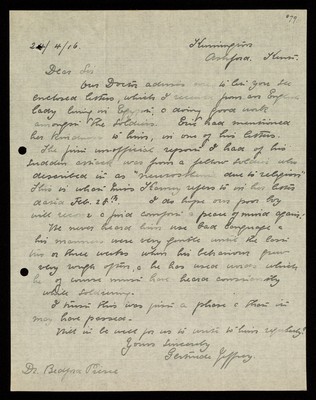 24/4/16.
Kennington
Ashford. Kent.
Dear Sir
Our Doctor advises me to let you see
enclosed letter, which I received from an English
lady living in Egypt, & doing good work
amongst the Soldiers. Eric had mentioned
her kindness to him, in one of his letters.
The first unofficial report I had of his
sudden illness was from a fellow soldier who
described it as "neurasthenia due to religion"
This is what Miss refers to in her letter
dated Feb. 28th. I do hope our poor boy
will recover & find comfort & peace of mind again.
We never heard him use bad language &
his manners were very gentle until the last
two or three weeks when his behaviour grew
very rough often, & he has used words which
he of course must have heard constantly
while soldiering.
I trust this was just a phase & that it
may have passed.
Will it be well for us to write to him regularly?
Yours sincerely
Gertrude Jeffrey
Dr. Bedford Pierce